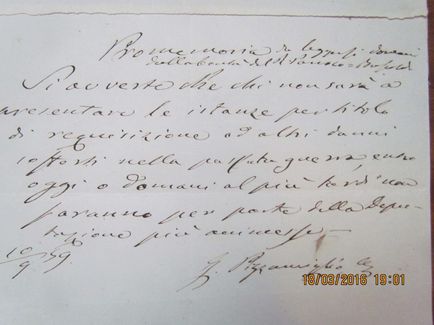 Promemoria da leggersi domani
dalla bontà del M. Parroco
Si avverte che chi non sarà a
presentare le istanze per titolo
di requisizione ed altri danni
sofferti nella passata guerra, entro
oggi o domani al più tardi non
saranno per parte della Depu-
tazione più ammesse.
10/9 59
18/03/2016 19:01